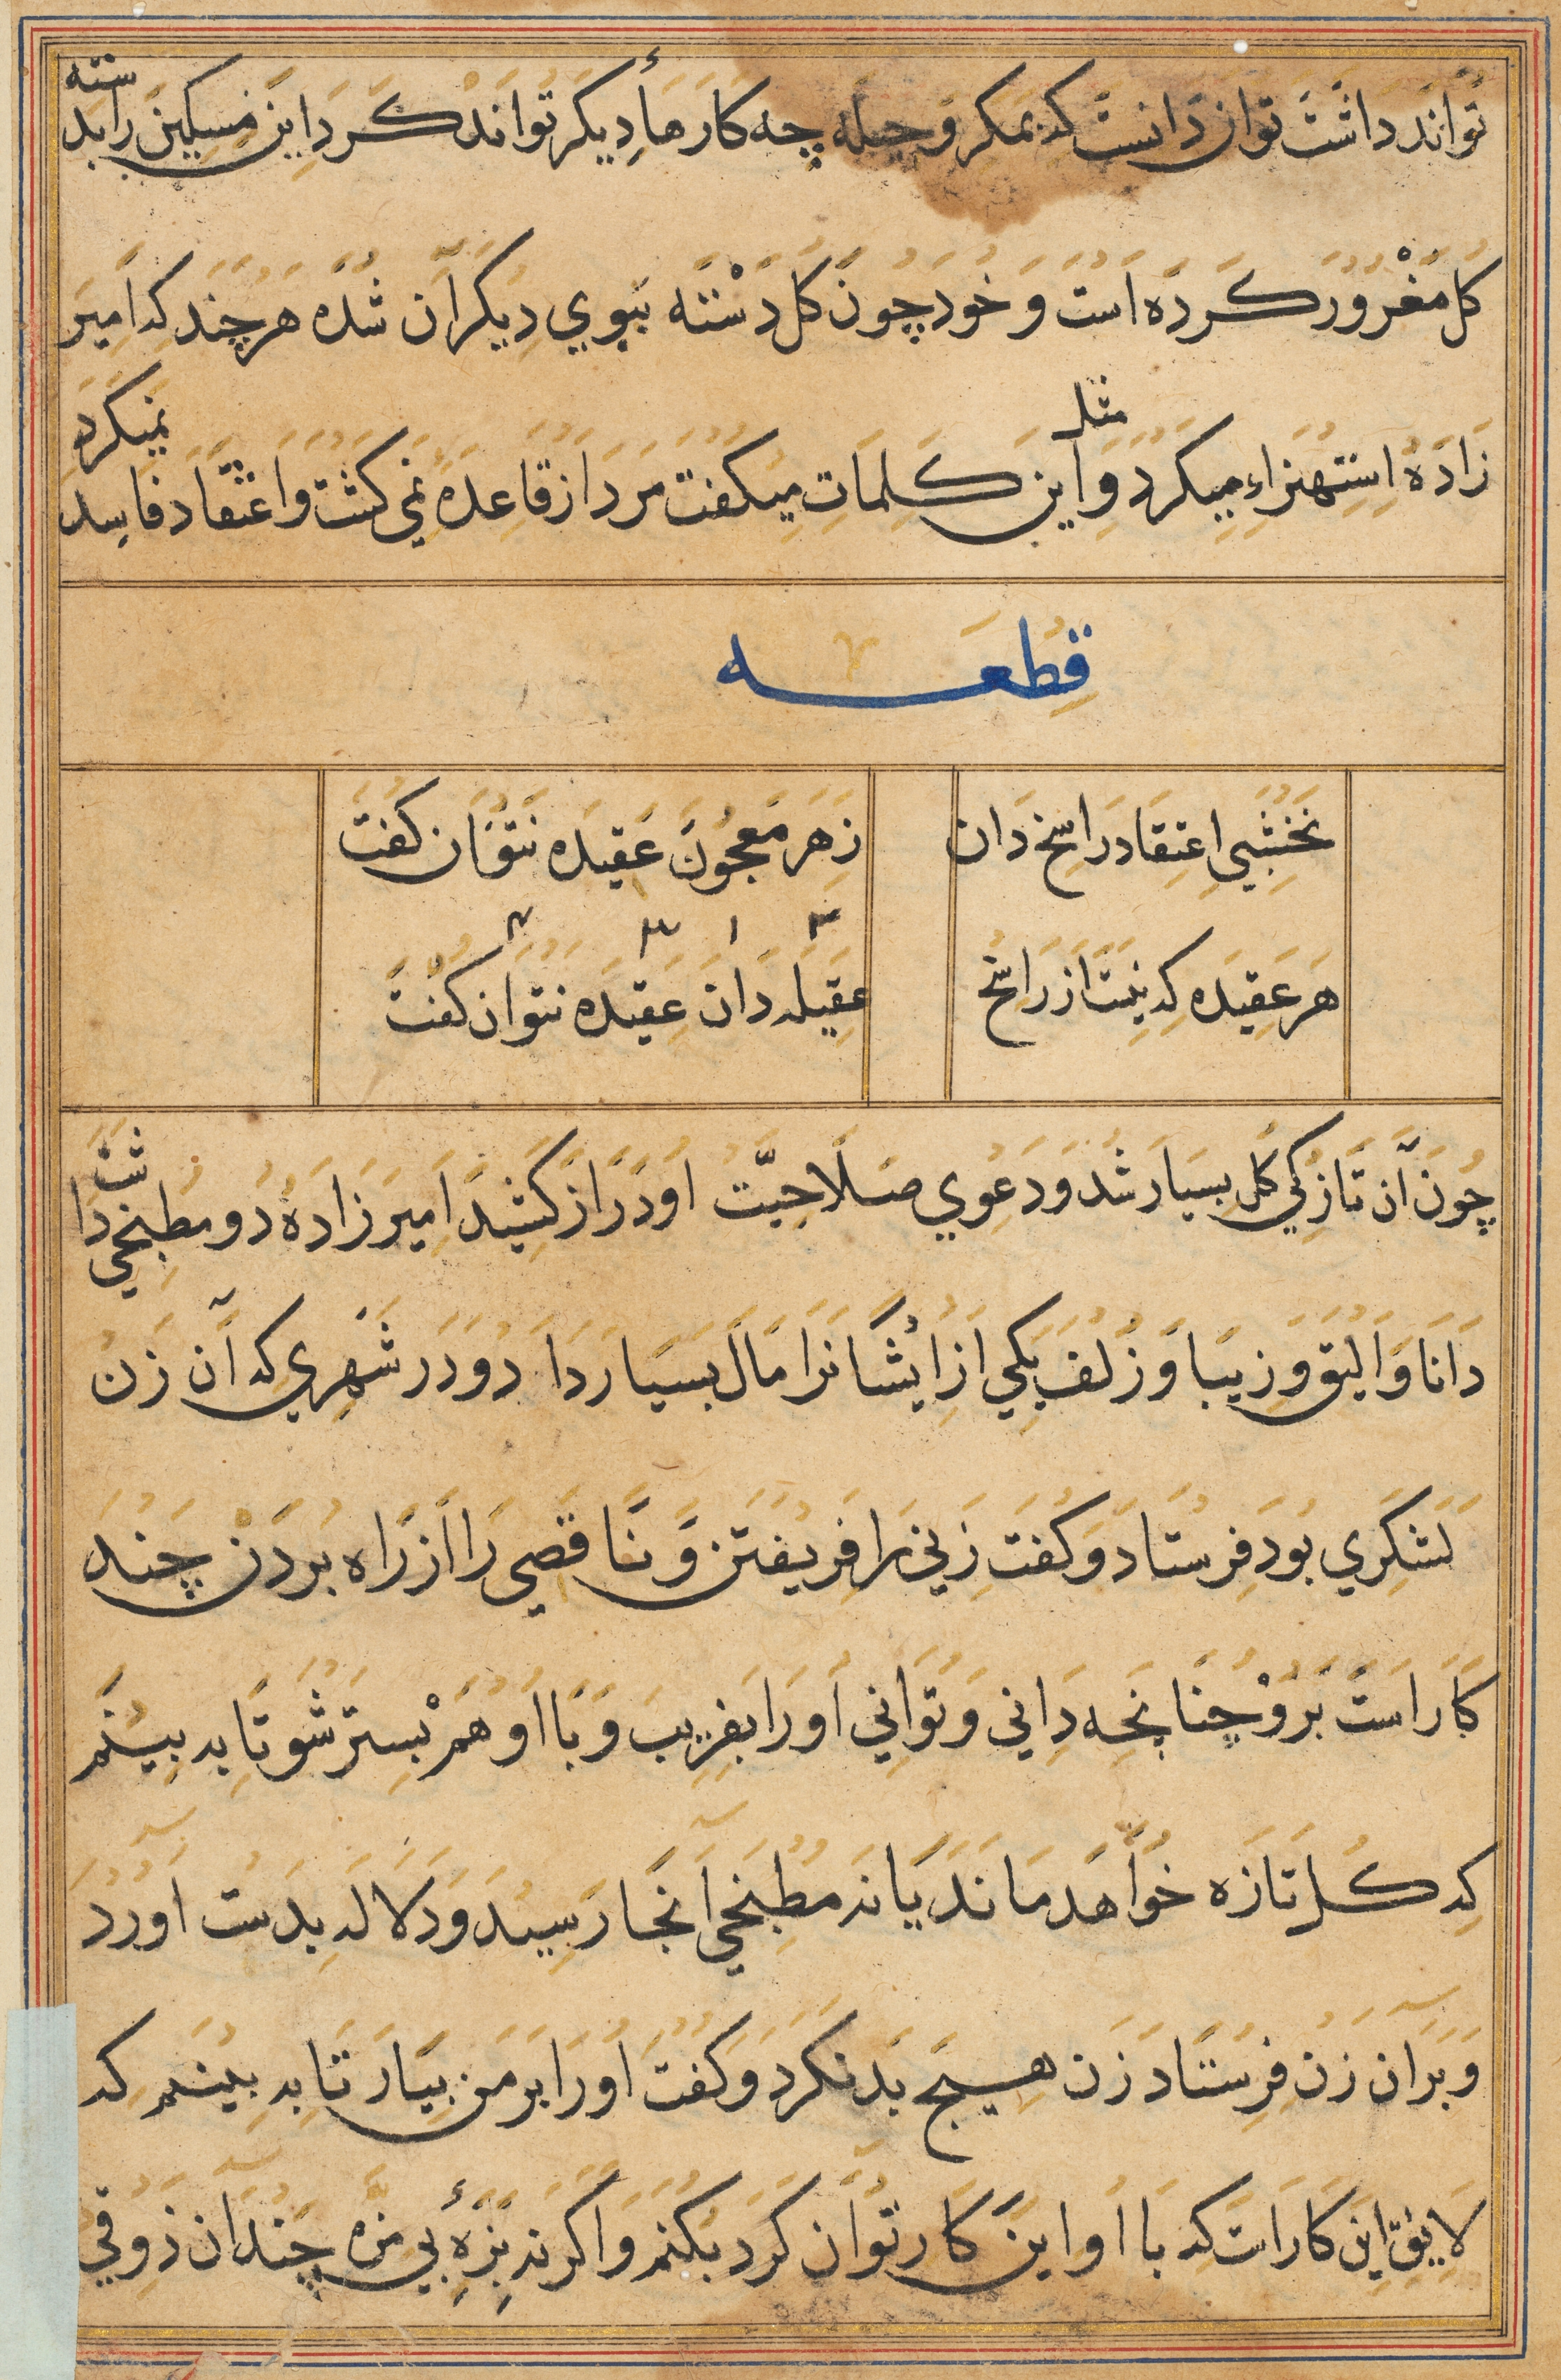 تواند داشت توان دانست که بمکر و حیله چه کارهاء دیکر تواند کرد این مسکین را بد سته
کل مغرور کرده است و خود چون کل دسته ببوي دیکران شده هر چند که امیر
زادهٔ استهزاء میکرد و مثل این کلمات میکفت مرد از قاعدهٔ نمی کشت و اعتقاد فاسد نمیکرد
قطعه
نخشبي اعتقاد راسخ دان
زهر معجون عقیده نتوان کفت
هر عقیده که نیست از راسخ
عقیله دان عقیده نتوان کفت
۲ ۱ ۳ ۴
چون آن تازکي کل بسیار شد و دعوي صلاحیت او دراز کشید امیر زادهٔ دو مطبخي داشت
دانا و الیق و زیبا و زلف یکي از ایشانرا مال بسیار دا دو در شهري که آن زن
لشکري بود فرستاد و کفت زني را فریفتن و ناقصي را از راه بردن چند
کار است برو چنانچه داني و تواني او را بفریب و با او هم بستر شو تا به بینم
که کل تازه خواهد ماند یا نه مطبخي آنجا رسید و دلاله بدست آورد
و بر آن زن فرستاد زن هیچ بد نکرد و کفت او را بر من بیار تا به بینم که
لایق این کار است که با او این کار توان کرد بکنم و اکر نه بزهٔ بي مزه چندان ذوقي